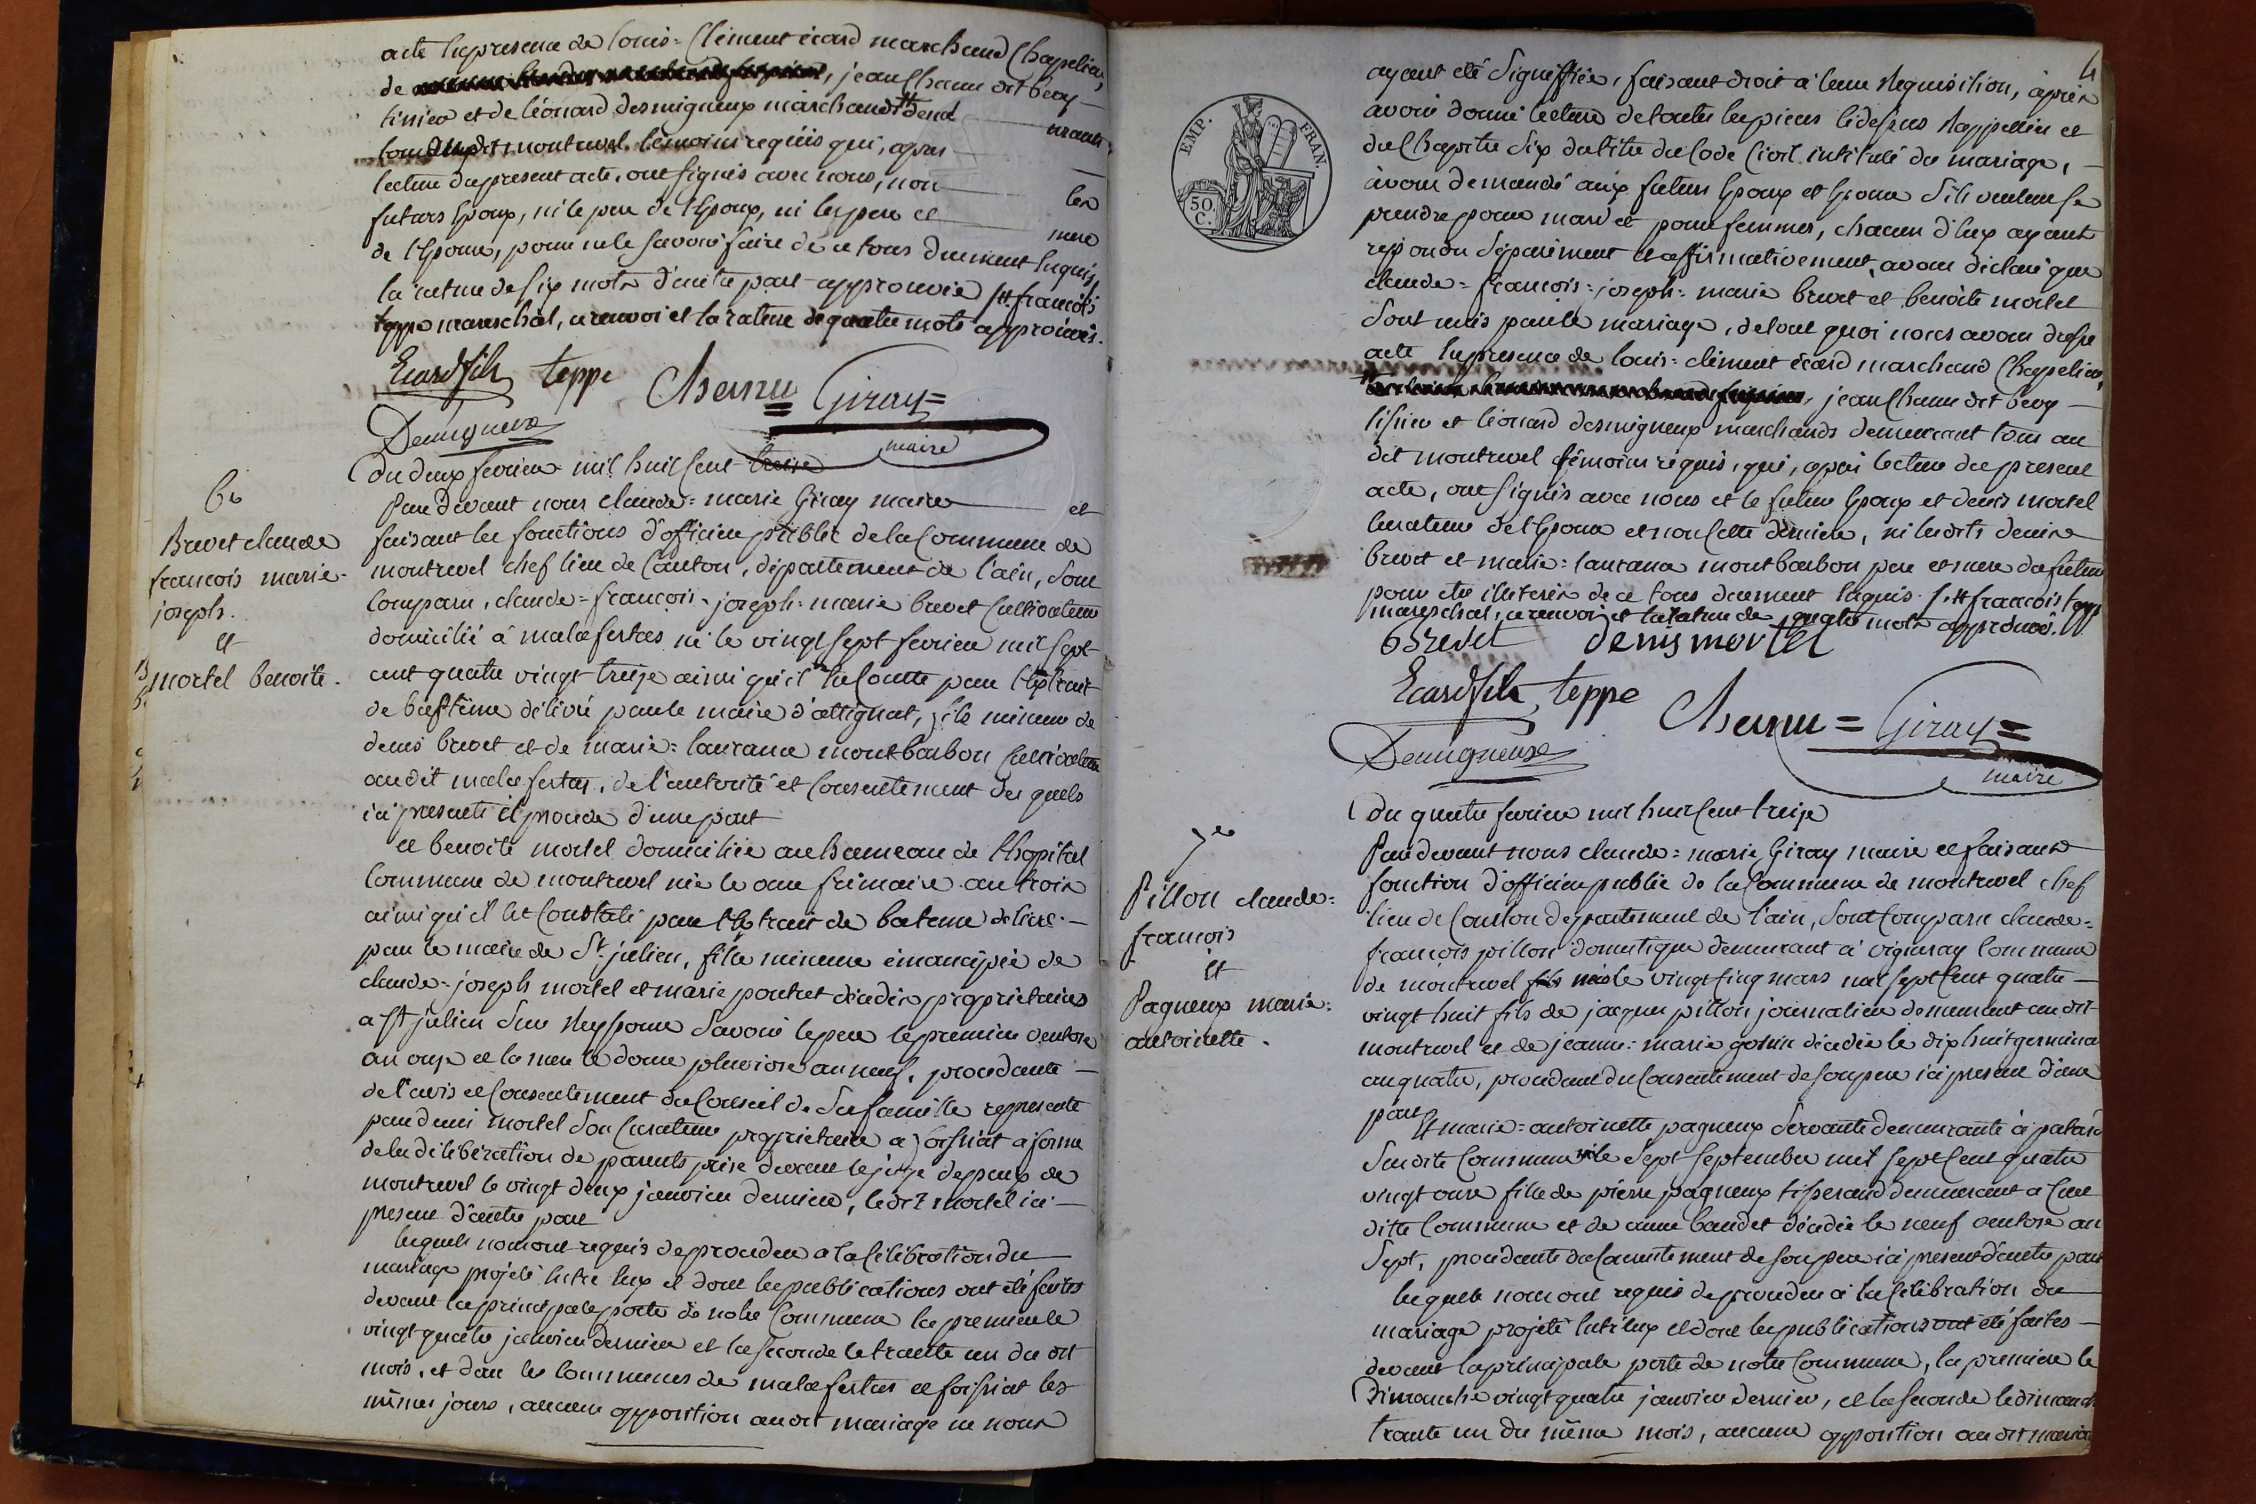 acte en presence de louis=Clément écard marchand Chapelier,
de jean Chanu dit bery
tissier et de léonard desmigneux marchands #demeurants
tous audit montrevel témoins requis qui, après
lecture du present acte, ont signés avec nous, non les
futurs Epoux, ni le père de l'Epoux, ni les père et mère
de l'Epouse, pour ne le savoir faire de ce tous duement enquis
la rature de six mots d'autre part approuvée # françois
teppe mareschal, ce renvoi et la rature de quatre mots approuvés.
Ecard fils teppe Chanu = Giray =
Desmigneux maire
Du deux fevrier mil huit cent treize
6e
Brevet claude
françois marie-
joseph.
et
mortel benoite.
Par Devant nous claude=marie Giray maire et
faisant les fonctions d'officier public de la Commune de
montrevel chef lieu de Canton, département de l'ain, sont
Comparu, claude=françois-joseph-marie brevet Cultivateur
domicilié à malafretas né le vingt sept fevrier mil sept
cent quatre vingt treize ainsi qu'il en Conste par l'Extrait
de baptême délivré par le maire d'attignat, fils mineur de
denis brevet et de marie=laurance montbarbon Cultivateurs
audit malafretas, de l'autorité et Consentement des quels
ici presents il procède d'une part
et benoite mortel domiciliée au hameau de l'hopital
Commune de montrevel née le onze frimaire an trois
ainsi qu'il est Constaté par l'Extrait de bateme délivré
par le maire de St. julien, fille mineure émancipée de
claude=joseph mortel et marie poutet décédés propriétaires
a St julien sur Reyssouze savoir le père le premier ventose
an onze et la mere le douze pluviose an neuf, procédante
de l'avis et Consentement du Conseil de sa famille representé
par denis mortel son Curateur propriétaire a foissiat a forme
de la délibération de parents prise devant le juge de paix de
montrevel le vingt deux janvier dernier, le dit mortel ici
present d'autre part
Lesquels nous ont requis de procéder a la Célébration du
mariage projeté entre eux et dont les publications ont été faites
devant la principale porte de notre Commune la premiere le
vingt quatre janvier dernier et la seconde le trente un du dit
mois, et dans les Communes de malafretas et foissiat les
mêmes jours, aucune opposition audit mariage ne nous
4
EMP. FRAN.
50 C.
ayant été Signiffiée, faisant droit à leur Requisition, après
avoir donné lecture de toutes les pieces ci dessus Rappellées et
du Chapitre Six du titre du Code Civil intitulé du mariage,
avons demandé aux futurs Epoux et Epouse s'ils veulent se
prendre pour mari et pour femme, chacun d'eux ayant
répondu séparément et affirmativement, avons déclaré que
claude=françois=joseph=marie brevet et benoite mortel
sont unis par le mariage, de tout quoi nous avons dressé
acte en presence de louis=clément écard marchand Chapelier,
# jean Chanu dit bery
tissier et léonard desmigneux marchands demeurant tous au
dit montrevel témoins réquis, qui, après lecture du present
acte, ont signés avec nous et le futur Epoux et denis mortel
Curateur de l'Epouse et non Cette dernière, ni lesdits denis
brevet et marie=laurance montbarbon père et mere du futur
pour etre illiterés de ce tous duement enquis. # françois teppe
mareschal, ce renvoi et la rature de quatre mots approuvés.
Brevet denis mortel
Ecard fils teppe Chanu = Giray =
Desmigneux maire
Du quatre fevrier mil huit cent treize
7e
Pillon claude=
françois
et
Pagneux marie=
antoinette.
Pardevant nous claude=marie Giray maire et faisant
fonction d'officier public de la Commune de montrevel chef
lieu de Canton département de l'ain, sont Comparu claude=
françois pillon domestique demeurant à vigneray Commune
de montrevel né le vingt cinq mars mil sept cent quatre
vingt huit fils de jacques pillon journalier demeurant audit
montrevel et de jeanne=marie decédée le dix huit germinal
an quatre, procédant du Consentement de son père ici present d'une
part
Et marie=antoinette pagneux servante demeurante à
susdite Commune née le sept septembre mil sept Cent quatre
vingt onze fille de pierre pagneux tisserand demeurant a Cette
ditte Commune et de anne baudet décédée le neuf ventose an
Sept, procédante du Consentement de son père ici present d'autre part
lesquels nous ont requis de procéder à la Célébration du
mariage projeté entr'eux et dont les publications ont été faites
devant la principale porte de notre Commune, la premiere le
Dimanche vingt quatre janvier dernier, et la seconde le dimanche
trente un du même mois, aucune opposition audit mariage